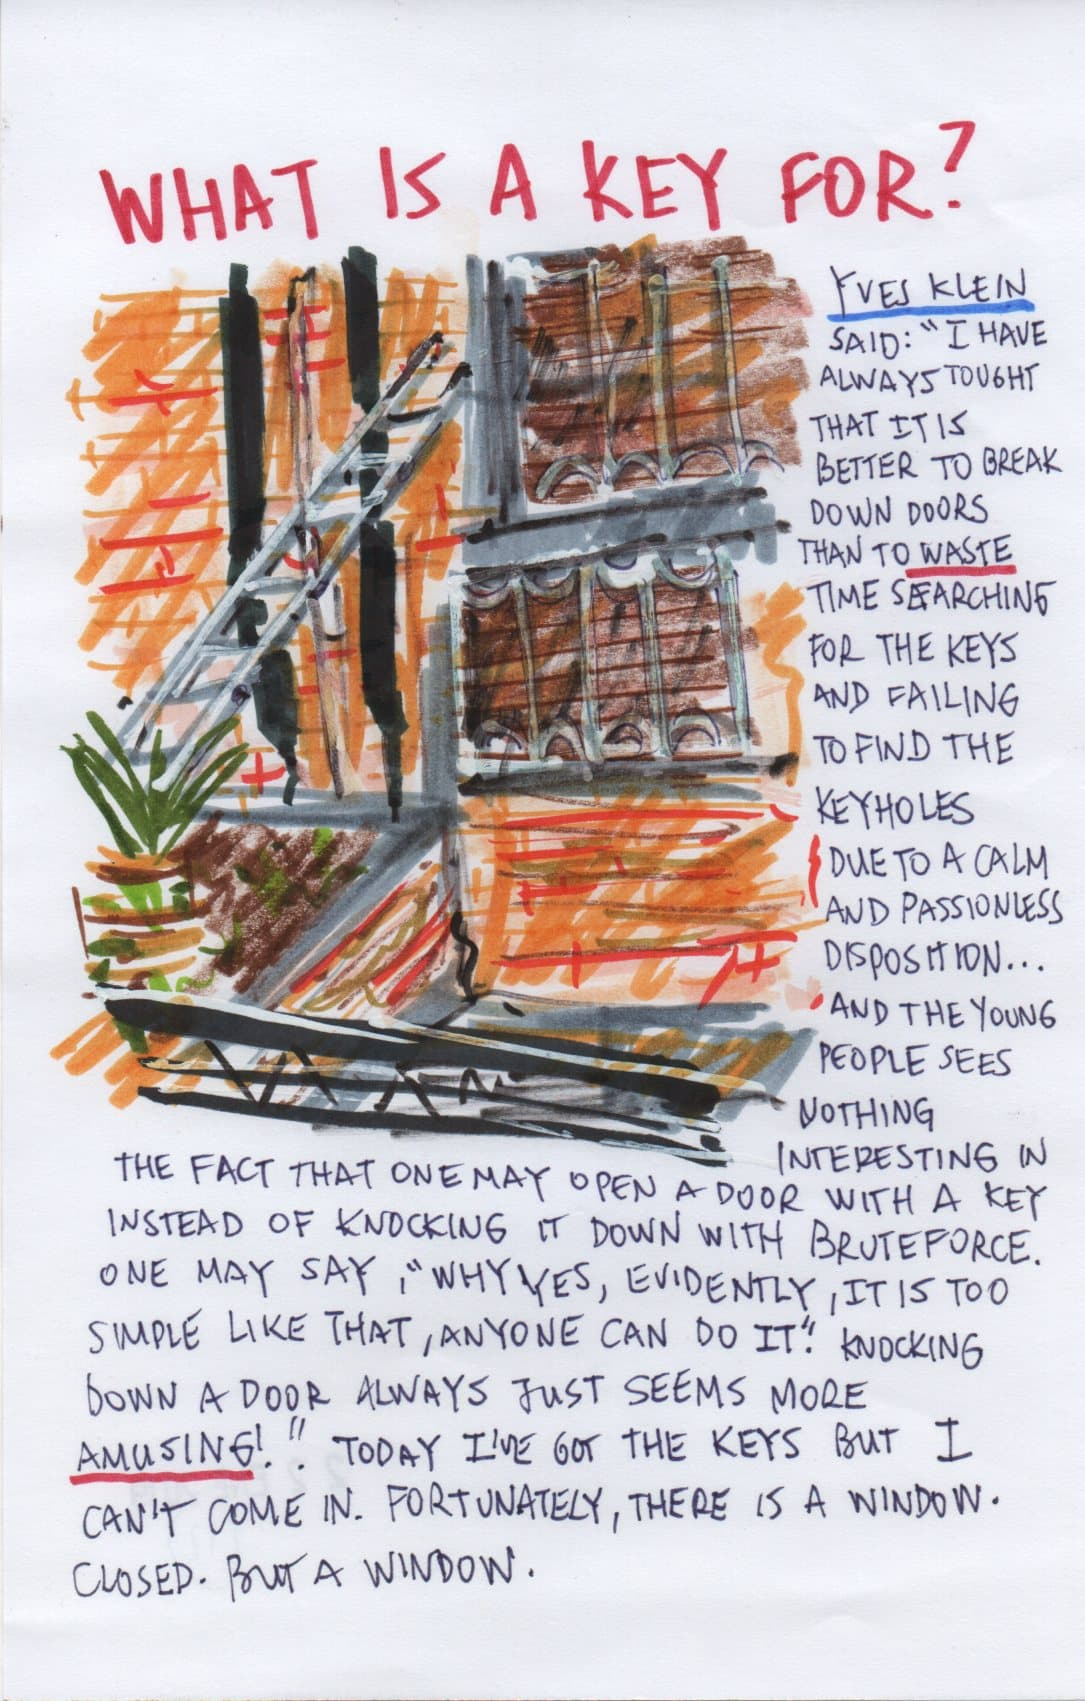 WHAT IS A KEY FOR?
YVES KLEIN
SAID: "I HAVE
ALWAYS TOUGHT
THAT IT IS
BETTER TO BREAK
DOWN DOORS
THAN TO WASTE
TIME SEARCHING
FOR THE KEYS
AND FAILING
TO FIND THE
KEYHOLES
DUE TO A CALM
AND PASSIONLESS
DISPOSITION...
AND THE YOUNG
PEOPLE SEES
NOTHING
INTERESTING IN
THE FACT THAT ONE MAY OPEN A DOOR WITH A KEY
INSTEAD OF KNOCKING IT DOWN WITH BRUTEFORCE.
ONE MAY SAY, "WHY YES, EVIDENTLY, IT IS TOO
SIMPLE LIKE THAT, ANYONE CAN DO IT". KNOCKING
DOWN A DOOR ALWAYS JUST SEEMS MORE
AMUSING!". TODAY I'VE GOT THE KEYS BUT I
CAN'T COME IN. FORTUNATELY, THERE IS A WINDOW.
CLOSED. BUT A WINDOW.